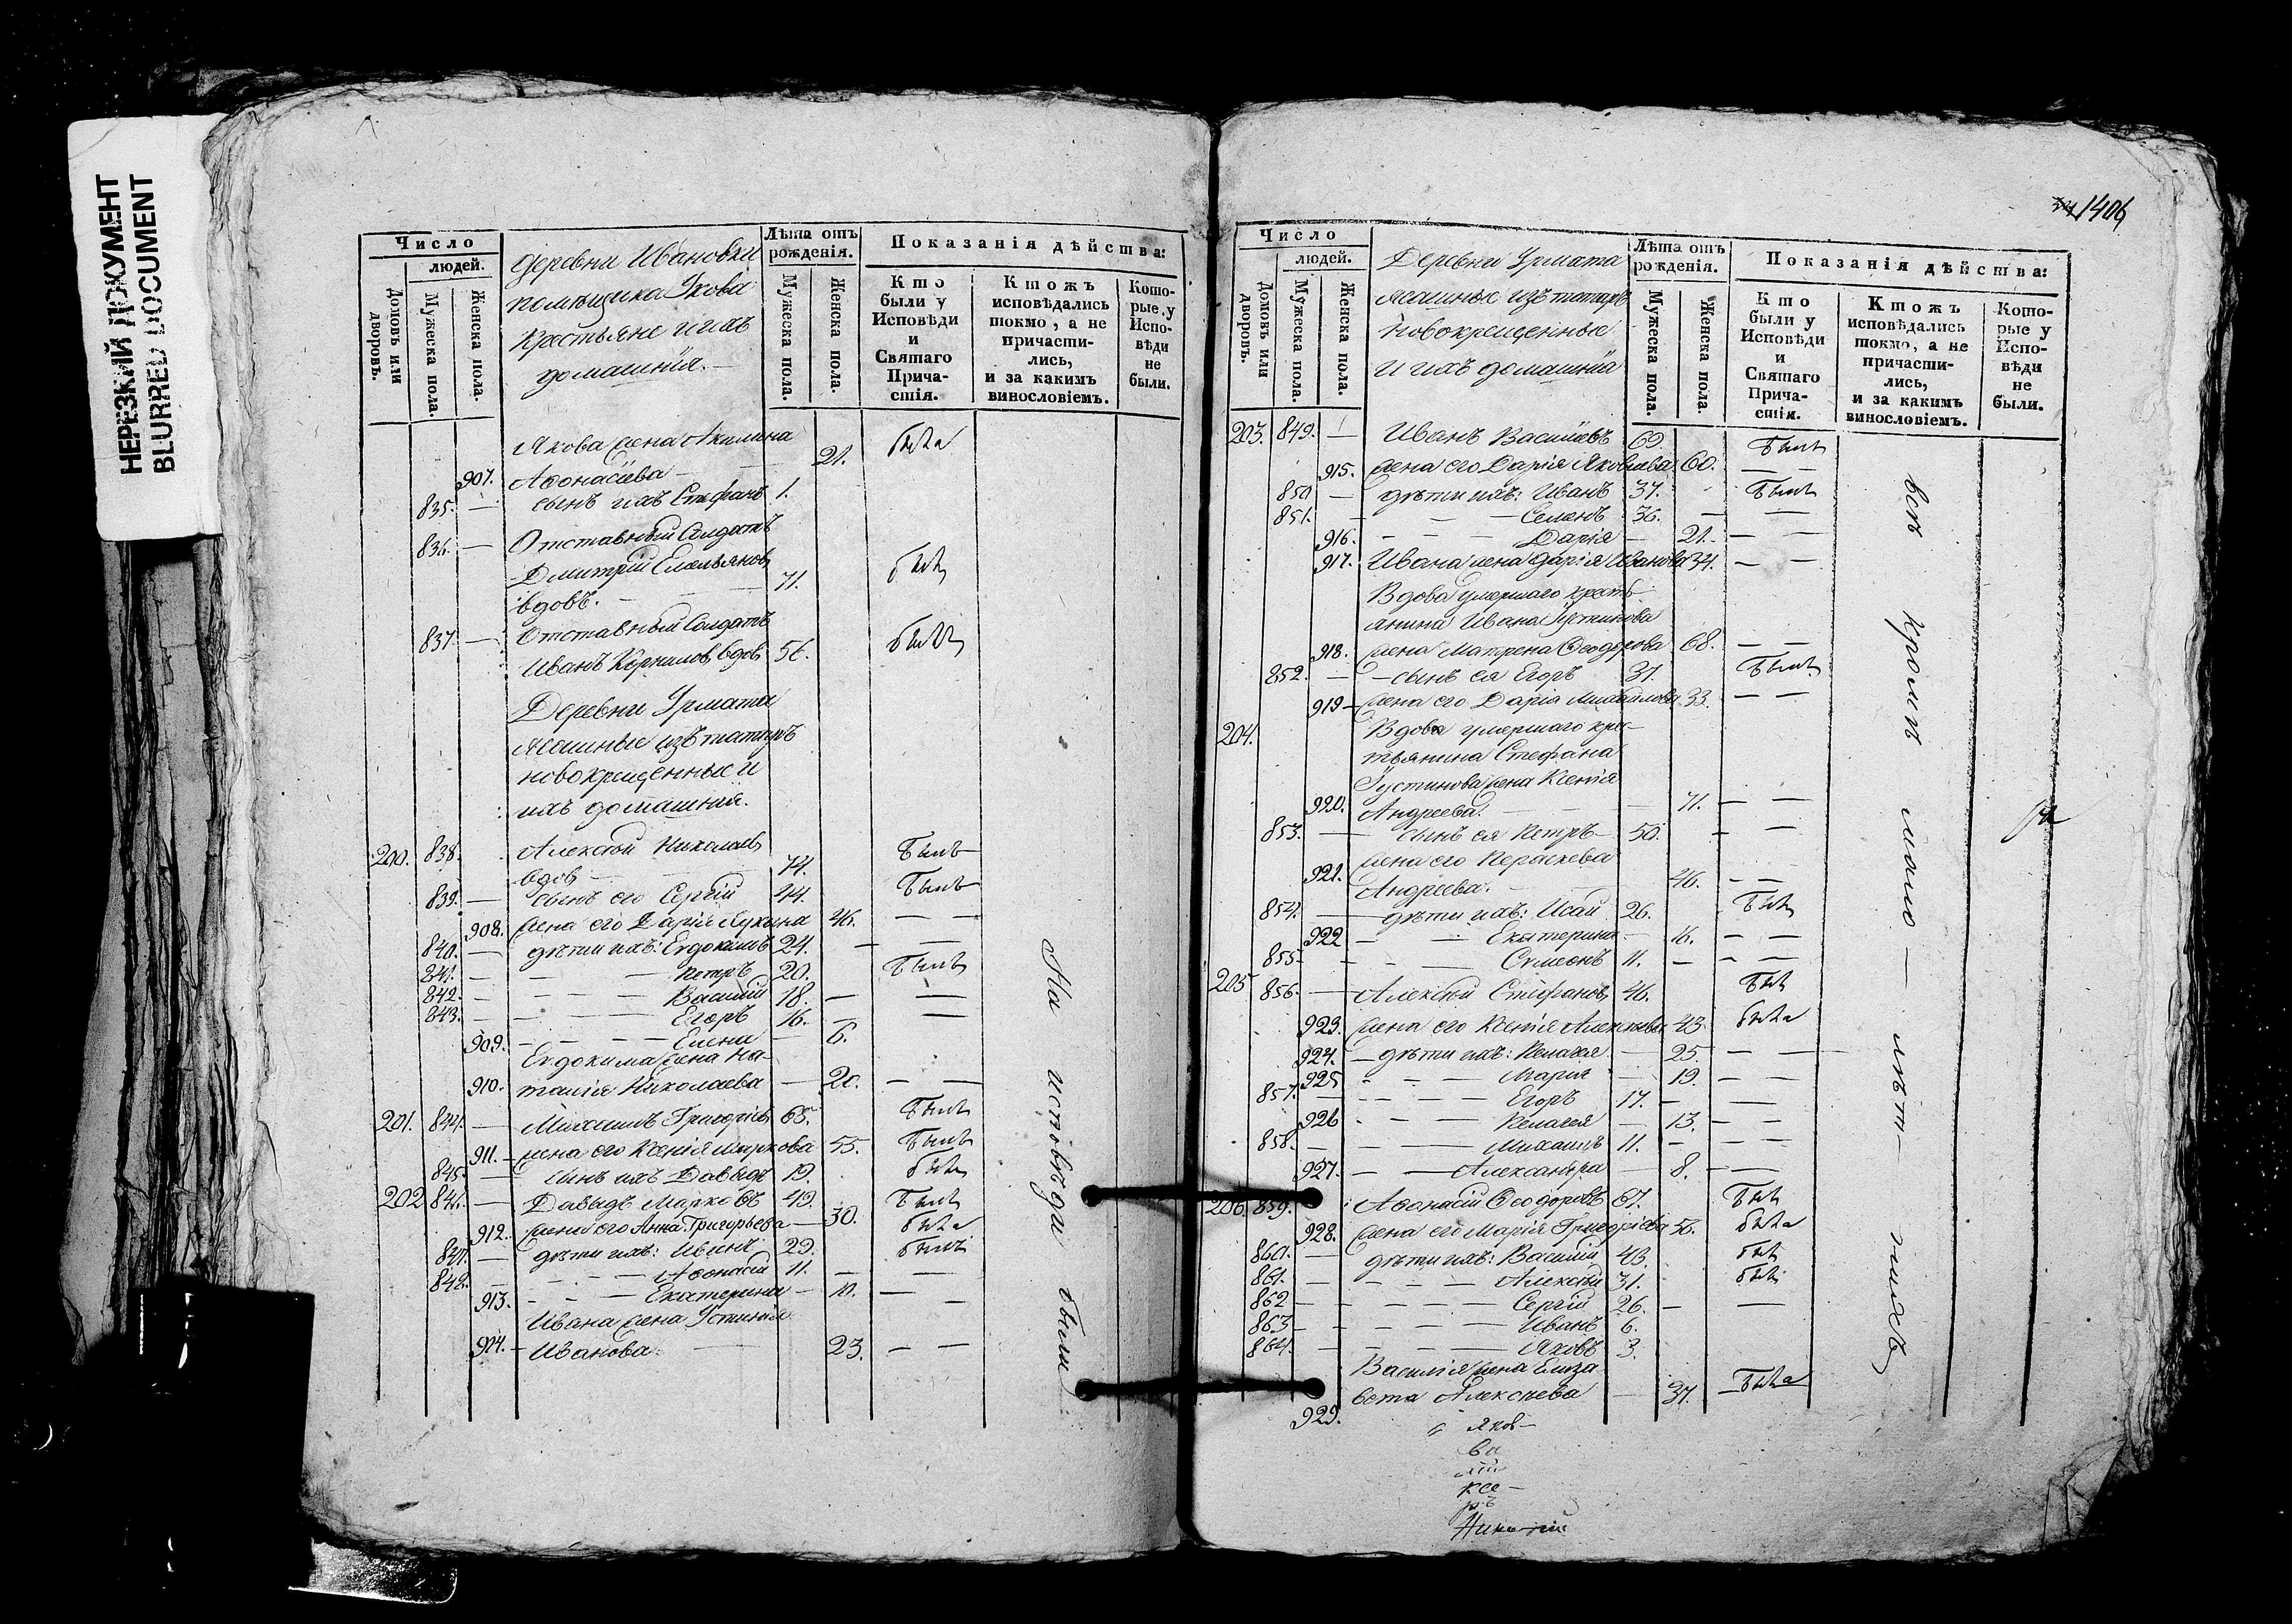 НЕРЕЗКИЙ ДОКУМЕНТ
BLURRED DOCUMENT
Число
людей.
Домовъ или дворовъ.
Мужеска пола.
Женска пола.
деревни Ивановки
помѣщика
Крестьяне и ихъ
домашнія.
Лѣта отъ рожденія.
Мужеска пола.
Женска пола.
Показанія дѣйства:
Кто были у Исповѣди и Святаго Причастія.
Ктожъ исповѣдались токмо, а не причастились, и за какимъ винословіемъ.
Которые у Исповѣди не были.
Якова жена Акилина
907. Аѳонасіева — 21. была
835. — сынъ ихъ Стефанъ 1.
836. — Отставный Солдатъ
Дмитрій Емельяновъ
вдовъ. — 71. былъ
837. — Отставный Солдатъ
Иванъ Корниловъ вдовъ 56. былъ
Деревни Урмата
ясашные изъ татаръ
новокрещенные и
ихъ домашнія.
200. 838. Алексѣй Николаевъ
вдовъ — 74. Былъ
839. — сынъ его Сергій 44. Былъ
908. жена его Дарія Лукина 46. — —
840. — дѣти ихъ: Евдокимъ 24. — —
841. — — Петръ 20. Былъ
842. — — Василій 18. — —
843. — — Егоръ 16. — —
909. — — Елена — 6.
Евдокима жена На-
910. талія Николаева — 20. — —
201. 844. — Михаилъ Григорьевъ 65. Былъ
911. — жена его Ксенія Маркова 55. Былъ
845. — сынъ ихъ Давыдъ 19. былъ
202 846. — Давыдъ Марковъ 49. Былъ
912. жена его Анна Григорьева — 30. была
847. — дѣти ихъ: Иванъ 29. Былъ
848. — — Аѳонасій 11. — —
913. — — Екатерина — 10. — —
Ивана жена Устинія
914. — Иванова. — 23. — —
На исповѣди были
1406
Число
людей.
Домовъ или дворовъ.
Мужеска пола.
Женска пола.
Деревни Урмата
ясашные изъ татаръ
Новокрещенные
и ихъ домашнія
Лѣта отъ рожденія.
Мужеска пола.
Женска пола.
Показанія дѣйства:
Кто были у Исповѣди и Святаго Причастія.
Ктожъ исповѣдались токмо, а не причастились, и за какимъ винословіемъ.
Которые у Исповѣди не были.
203. 849. — Иванъ Васильевъ 69. Былъ
915. жена его Дарія Яковлева 60. — —
850 — дѣти ихъ: Иванъ 37. Былъ
851. — — Семенъ 36. — —
916. — — Дарія — 21. — —
917. Ивана жена Дарія Иванова 34. — —
Вдова умершаго кресть-
янина Ивана Густинова
918. жена Матрена Ѳеодорова 68. — —
852. — сынъ ея Егоръ 31. Былъ
919 — жена его Дарія Михайлова 33. — —
204. Вдова умершаго крес-
тьянина Стефана
Густинова жена Ксенія
920. Андреева. — 71. — —
853. — сынъ ея Петръ — 50. — —
жена его Параскева
921. Андреева. — 46. — —
854. — дѣти ихъ: Исай 26. Былъ
922 — — Екатерина — 16. — —
855 — — Симеонъ 11. — —
205 856. — Алексѣй Стефановъ 46. Былъ
923. жена его Ксенія Алексѣева 43. была
924. — дѣти ихъ: Пелагея — 25. — —
925 — — Марія — 19. — —
857. — — Егоръ 17. — —
926 — — Пелагея — 13. — —
858. — — Михаилъ 11. — —
927. — — Александра — 8. — —
206. 859. Аѳонасій Ѳеодоровъ 67. Былъ
928. жена его Марія Григорьева 56. была
860. — дѣти ихъ: Василій 43. былъ
861. — — Алексѣй 31. былъ
862 — — Сергій 26. — —
863 — — Иванъ 6.
864. — — Яковъ 3.
Василія жена Елиза-
929. вета Алексѣева — 37. — была
всѣ кромѣ мало — лѣт- нихъ
Яков-